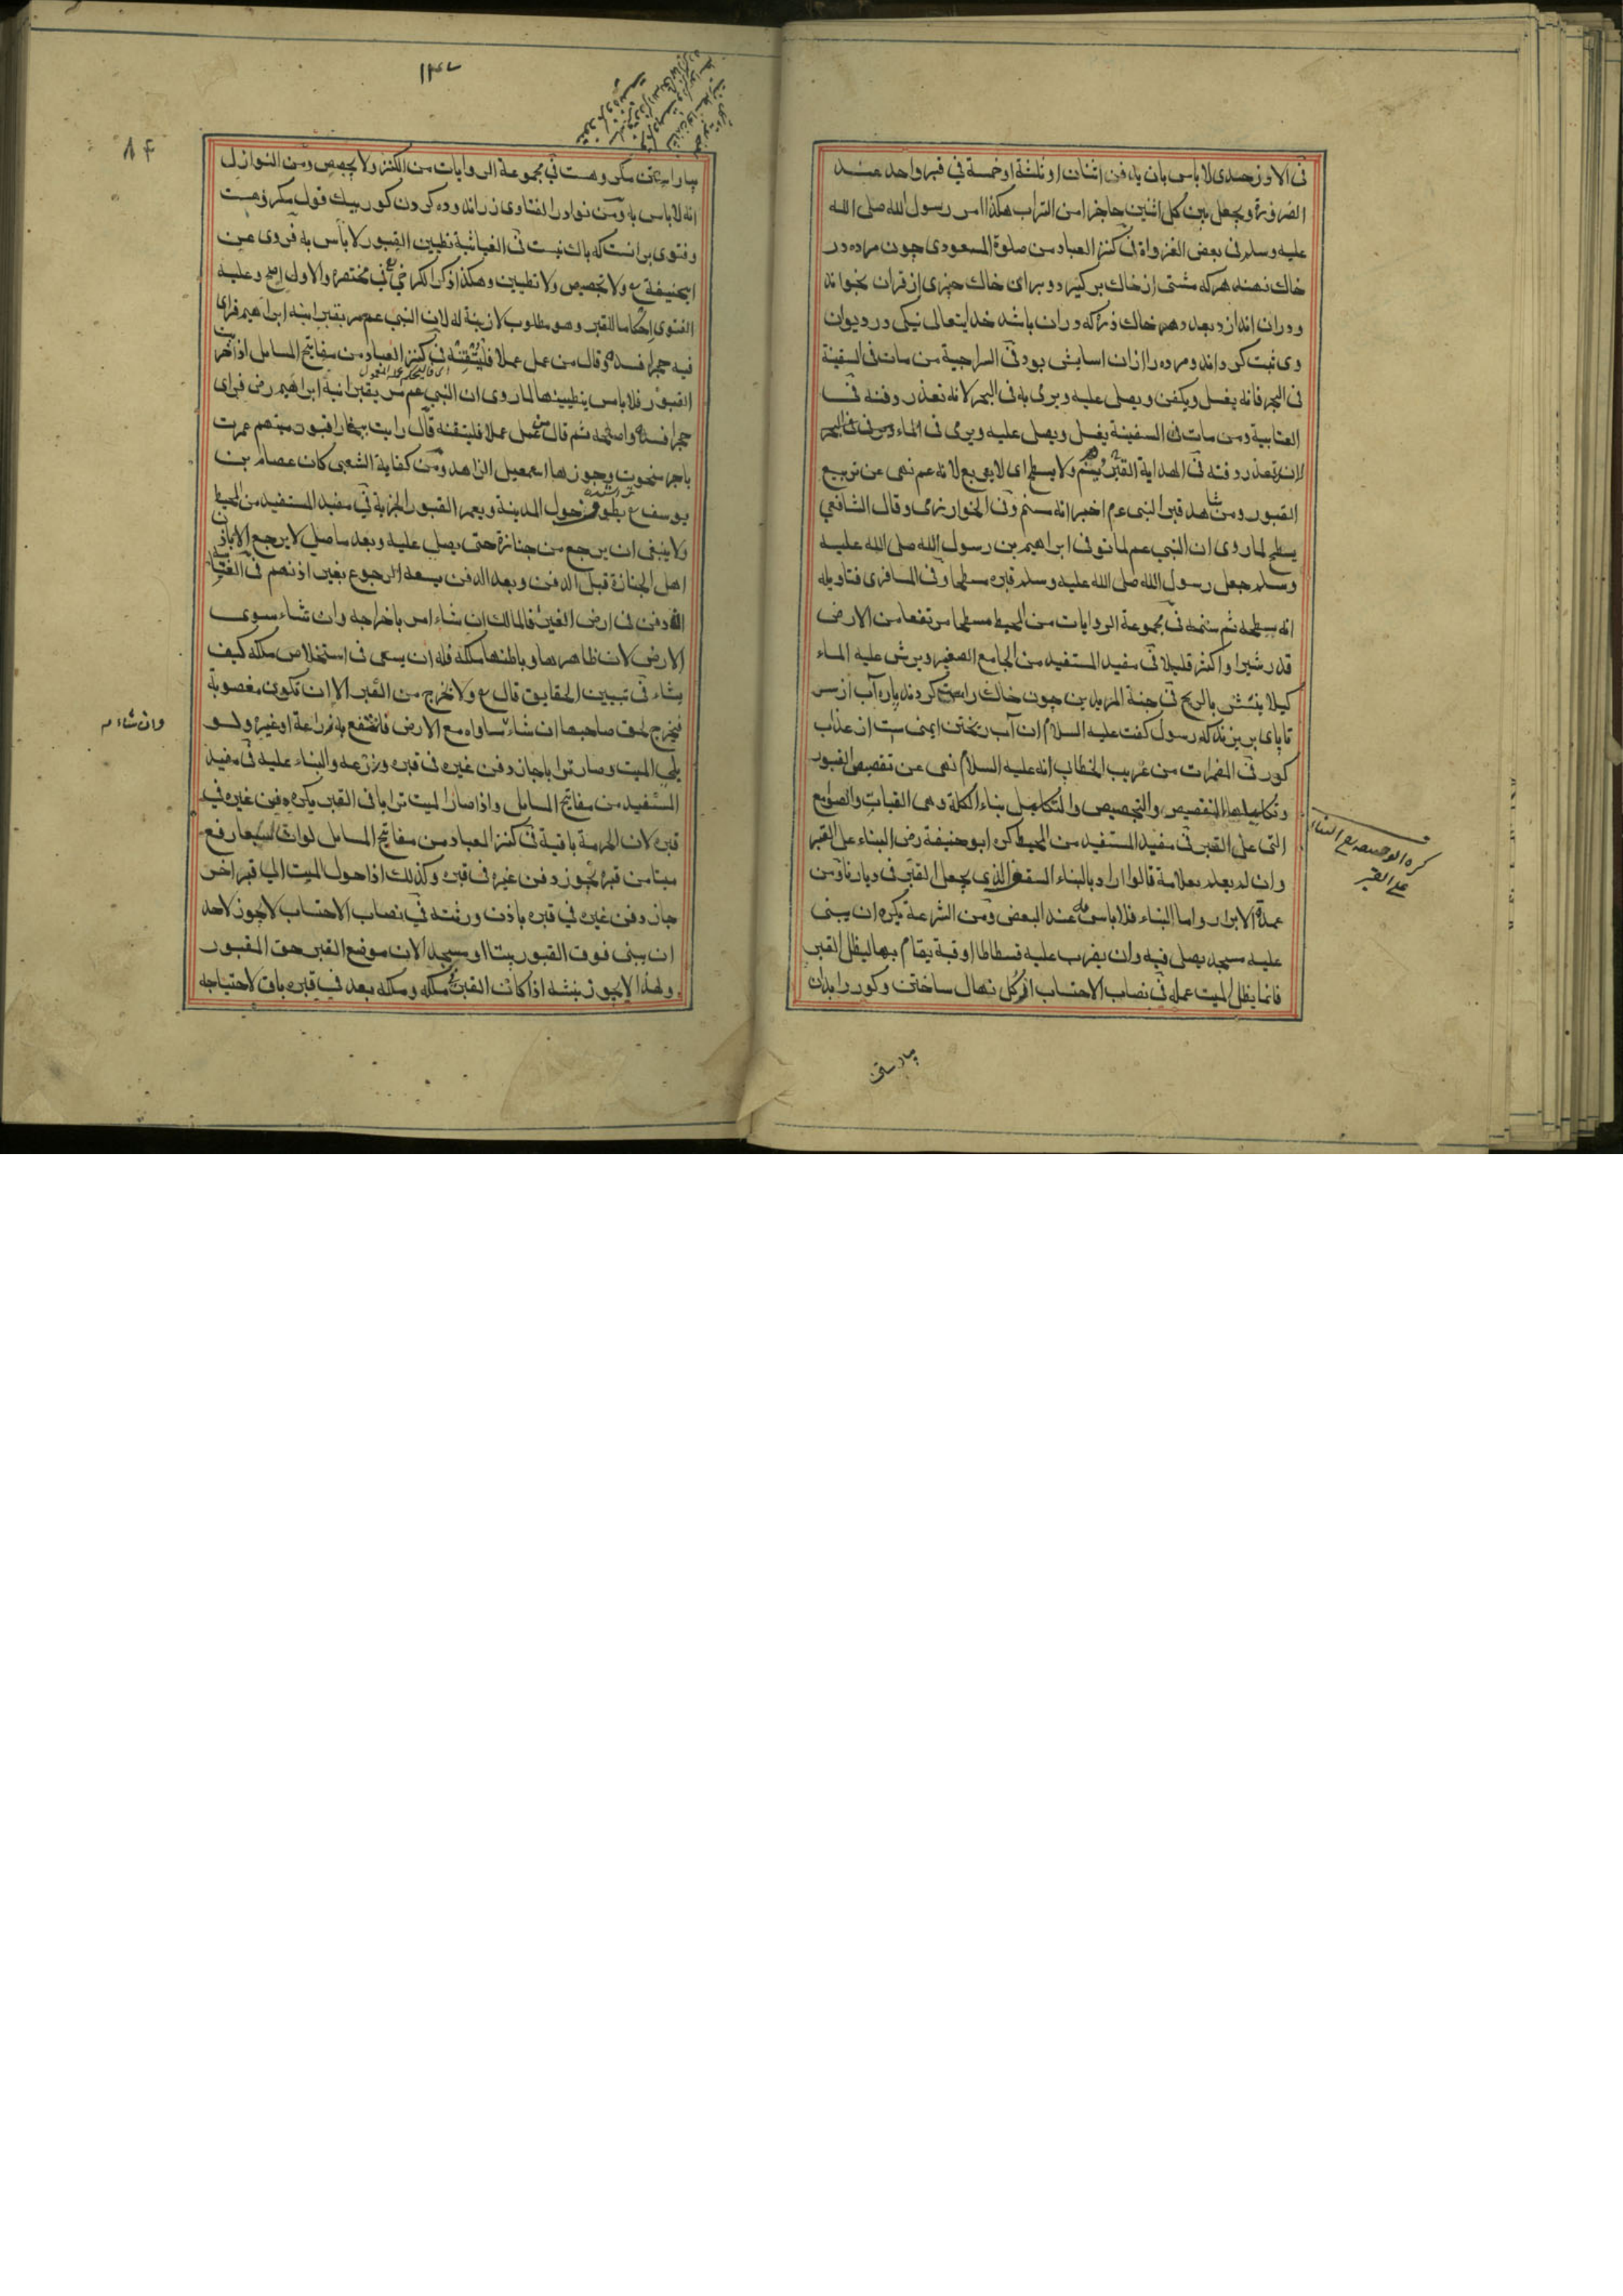 فى الاوزجندى لا باس بان يدفن اثنان او ثلثة او خمسة في قبر واحد عند
الضرورة ويجعل بين كل اثنين حاجزا من التراب هكذا امر رسول الله صلى الله
عليه وسلم فى بعض الغزواة فى كنز العباد من صلوة المسعودى چون مرده در
خاك نهند هركه مشتى از خاك بر كيرد و بران خاك چيزى از قران بخواند
ودران اندازد بعدد هر خاك ذره كه دران باشد خدايتعالى نيكى در ديوان
وى ثبت كرداند ومرده را ازان اسايش بود فى السراجية من مات فى السفينة
فى البحر فانه يغسل ويكفن ويصلى عليه ويرمى به فى البحر لانه تعذر دفنه فى
العتابية ومن مات فى السفينة يغسل ويصلى عليه ويرمى فى الماء
لان تعذر دفنه فى الهداية القبر يسنم ولا يسطح اى لا يربع لانه عم نهى عن تربيع
القبور ومن شاهد قبر النبى عم اخبر انه مسنم وفى الخوارزمى وقال الشافعي
يسطح لما روى ان النبي عم لما توفى ابراهيم بن رسول الله صلى الله عليه
وسلم جعل رسول الله صلى الله عليه وسلم قبره مسطحا وفى المسافرى فتاويله
انه سطحه ثم سنمه فى مجموعة الروايات من المحيط مسطحا مرتفعا من الارض
قدر شبر او اكثر قليلا فى مفيد المستفيد من الجامع الصغير ويرش عليه الماء
كيلا ينتشر بالريح فى جنة المريدين چون خاك راست كردند پاره آب از سر
تا پاى بريزند كه رسول كفت عليه السلام ان آب ريختن ايمنى ست از عذاب
كور فى المضمرات من غريب الخطاب انه عليه السلام نهى عن تقصيص القبور
وتكليلها التقصيص والتجصيص والتكليل بناء الكلة وهى القباب والصوامع
التى على القبر فى مفيد المستفيد من المحيط كره ابو حنيفة رض البناء على القبر
وان لم يعلم بعلامة قالوا اراد بالبناء السفط الذى يجعل القبر فى ديارنا ومن
عمدة الابرار واما البناء فلا باس به عند البعض ومن الشرعة يكره ان يبنى
عليه مسجد يصلى فيه وان يضرب عليه فسطاطا او قبة يقام بها ليظل القبر
فانما يظل الميت عمله فى نصاب الاحتساب از كل نهال ساختن وكور را بدان
كره ابو حنيفة رح البناء
على القبر
پار ستن
١٣٧
٨٤
مكروهست في مجموعة الروايات من الكنز ولا يجصص ومن النوازل
انه لا باس به ومن نوادر الفتاوى زر اندوده كردن كور بيك قول مكروهست
وفتوى برانست كه باك نيست فى الغياثية تطيين القبور لا باس به فروى عن
ابيحنيفة رح ولا تجصيص ولا تطيين وهكذا ذكر الكرخي في مختصره والاول اصح وعليه
الفتوى احكاما للقبر وهو مطلوب لا زينة له لان النبي عم مر بقبر ابنه ابراهيم فراى
فيه حجرا فسده وقال من عمل عملا فليتقنه فى كنز العباد من مفاتيح المسايل اذا خربت
القبور فلا باس بتطيينها لما روى ان النبي عم مر بقبر ابنه ابراهيم رض فراى
حجرا فسده واصلحه ثم قال من عمل عملا فليتقنه قال رايت ببخارا قبور منهم عمرت
باجر منحوت وجوزها اسمعيل الزاهد ومن كفاية الشعبى كان عصام بن
يوسف رح يطوف حول المدينة ويعمر القبور الخربة في مفيد المستفيد من المحيط
ولا ينبغى ان يرجع من جنازة حتى يصلى عليه وبعد ما صلى لا يرجع الا باذن
اهل الجنازة قبل الدفن وبعد الدفن يسعه الرجوع بغير اذنهم فى العتابية
الدفن فى ارض الغير فالمالك ان شاء امر باخراجه وان شاء سوى
الارض لان ظاهرها وباطنها ملكه فله ان يسعى فى استخلاص ملكه كيف
يشاء فى تبيين الحقايق قال رح ولا يخرج من القبر الا ان تكون مغصوبة
فيخرج لحق صاحبها ان شاء ساواه مع الارض فانتفع به زراعة او غيره ولو
بلى الميت وصار ترابا جاز دفن غيره فى قبره وزرعه والبناء عليه فى مفيد
المستفيد من مفاتيح المسايل واذا صار الميت ترابا فى القبر يكره دفن غيره في
قبره لان الحرمة باقية فى كنز العباد من مفاتيح المسايل لو ان سبعا رفع
ميتا من قبره يجوز دفن غيره فى قبره وكذلك اذا حول الميت الي قبر اخر
جاز دفن غيره في قبره باذن ورثته في نصاب الاحتساب لا يجوز لاحد
ان يبنى فوق القبور بيتا او مسجدا لان موضع القبر حق المقبور
ولهذا لا يجوز نبشه اذا كان القبر فى ملكه وملكه بعد في قبره باق لاحتياجه
وان شاء م